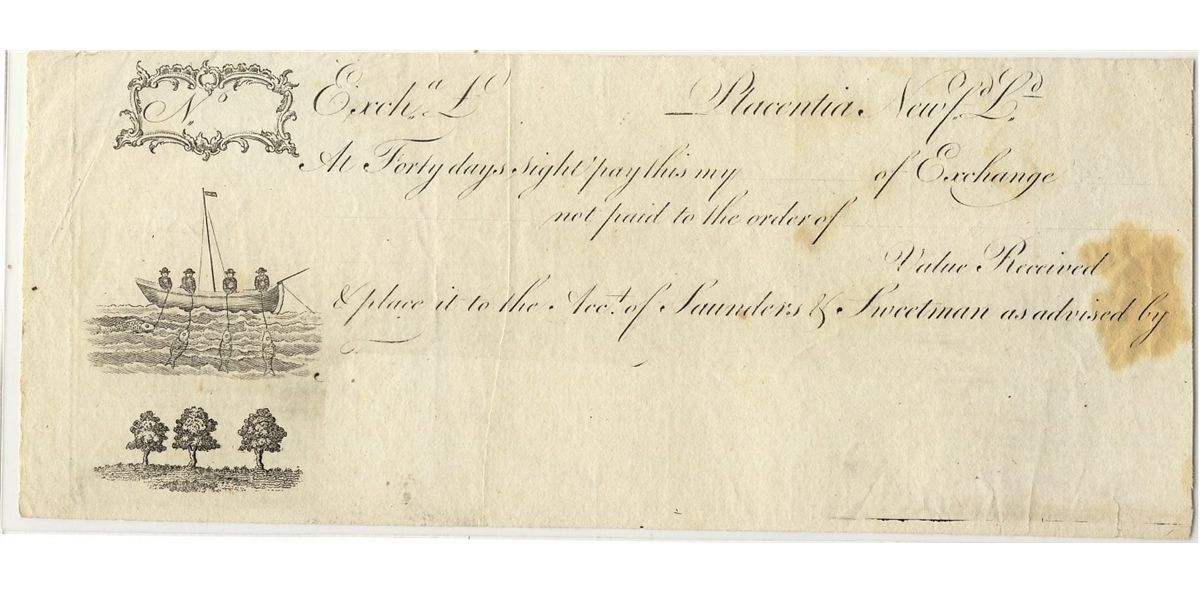 No. Excha. £ Placentia Newf.d L.d
At Forty days sight pay this my of Exchange
not paid to the order of
Value Received
& place it to the Acct. of Saunders & Sweetman as advised by